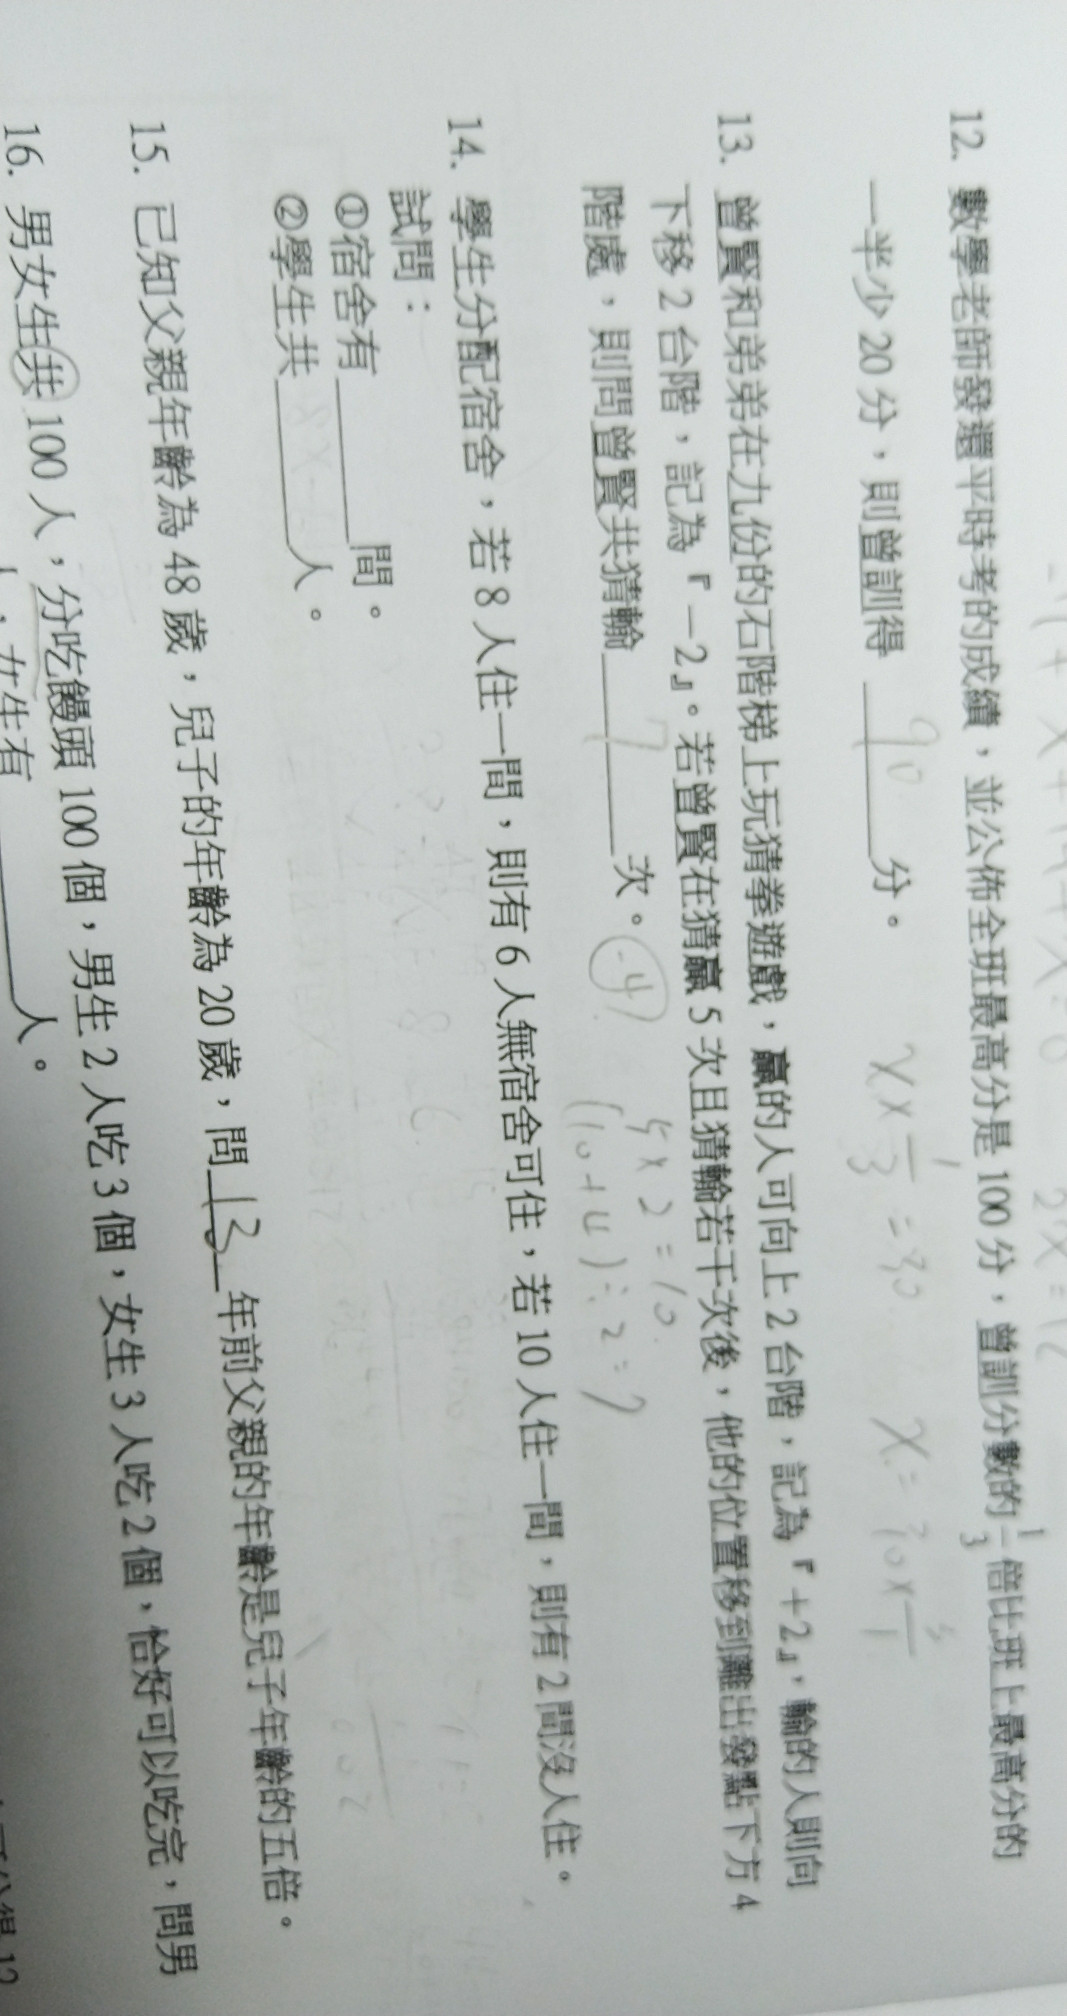 12. 數學老師發還平時考的成績，並公佈全班最高分是 100 分，曾訓分數的 1/3 倍比班上最高分的
一半少 20 分，則曾訓得 90 分。
x × 1/3 = 30 x = 30 × 3/1
13. 曾賢和弟弟在九份的石階梯上玩猜拳遊戲，贏的人可向上 2 台階，記為『+2』，輸的人則向
下移 2 台階，記為『-2』。若曾賢在猜贏 5 次且猜輸若干次後，他的位置移到離出發點下方 4
階處，則問曾賢共猜輸 7 次。 -4
5 × 2 = 10
(10+4) ÷ 2 = 7
14. 學生分配宿舍，若 8 人住一間，則有 6 人無宿舍可住，若 10 人住一間，則有 2 間沒人住。
試問：
①宿舍有______間。
②學生共______人。
15. 已知父親年齡為 48 歲，兒子的年齡為 20 歲，問 13 年前父親的年齡是兒子年齡的五倍。
16. 男女生共 100 人，分吃饅頭 100 個，男生 2 人吃 3 個，女生 3 人吃 2 個，恰好可以吃完，問男
女生有______人。